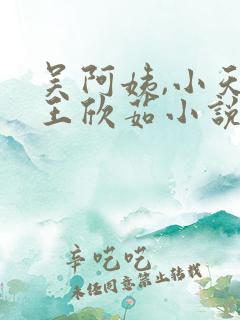 吴阿姨,小天
王欣茹小说
辛吃吃
未经同意禁止转载